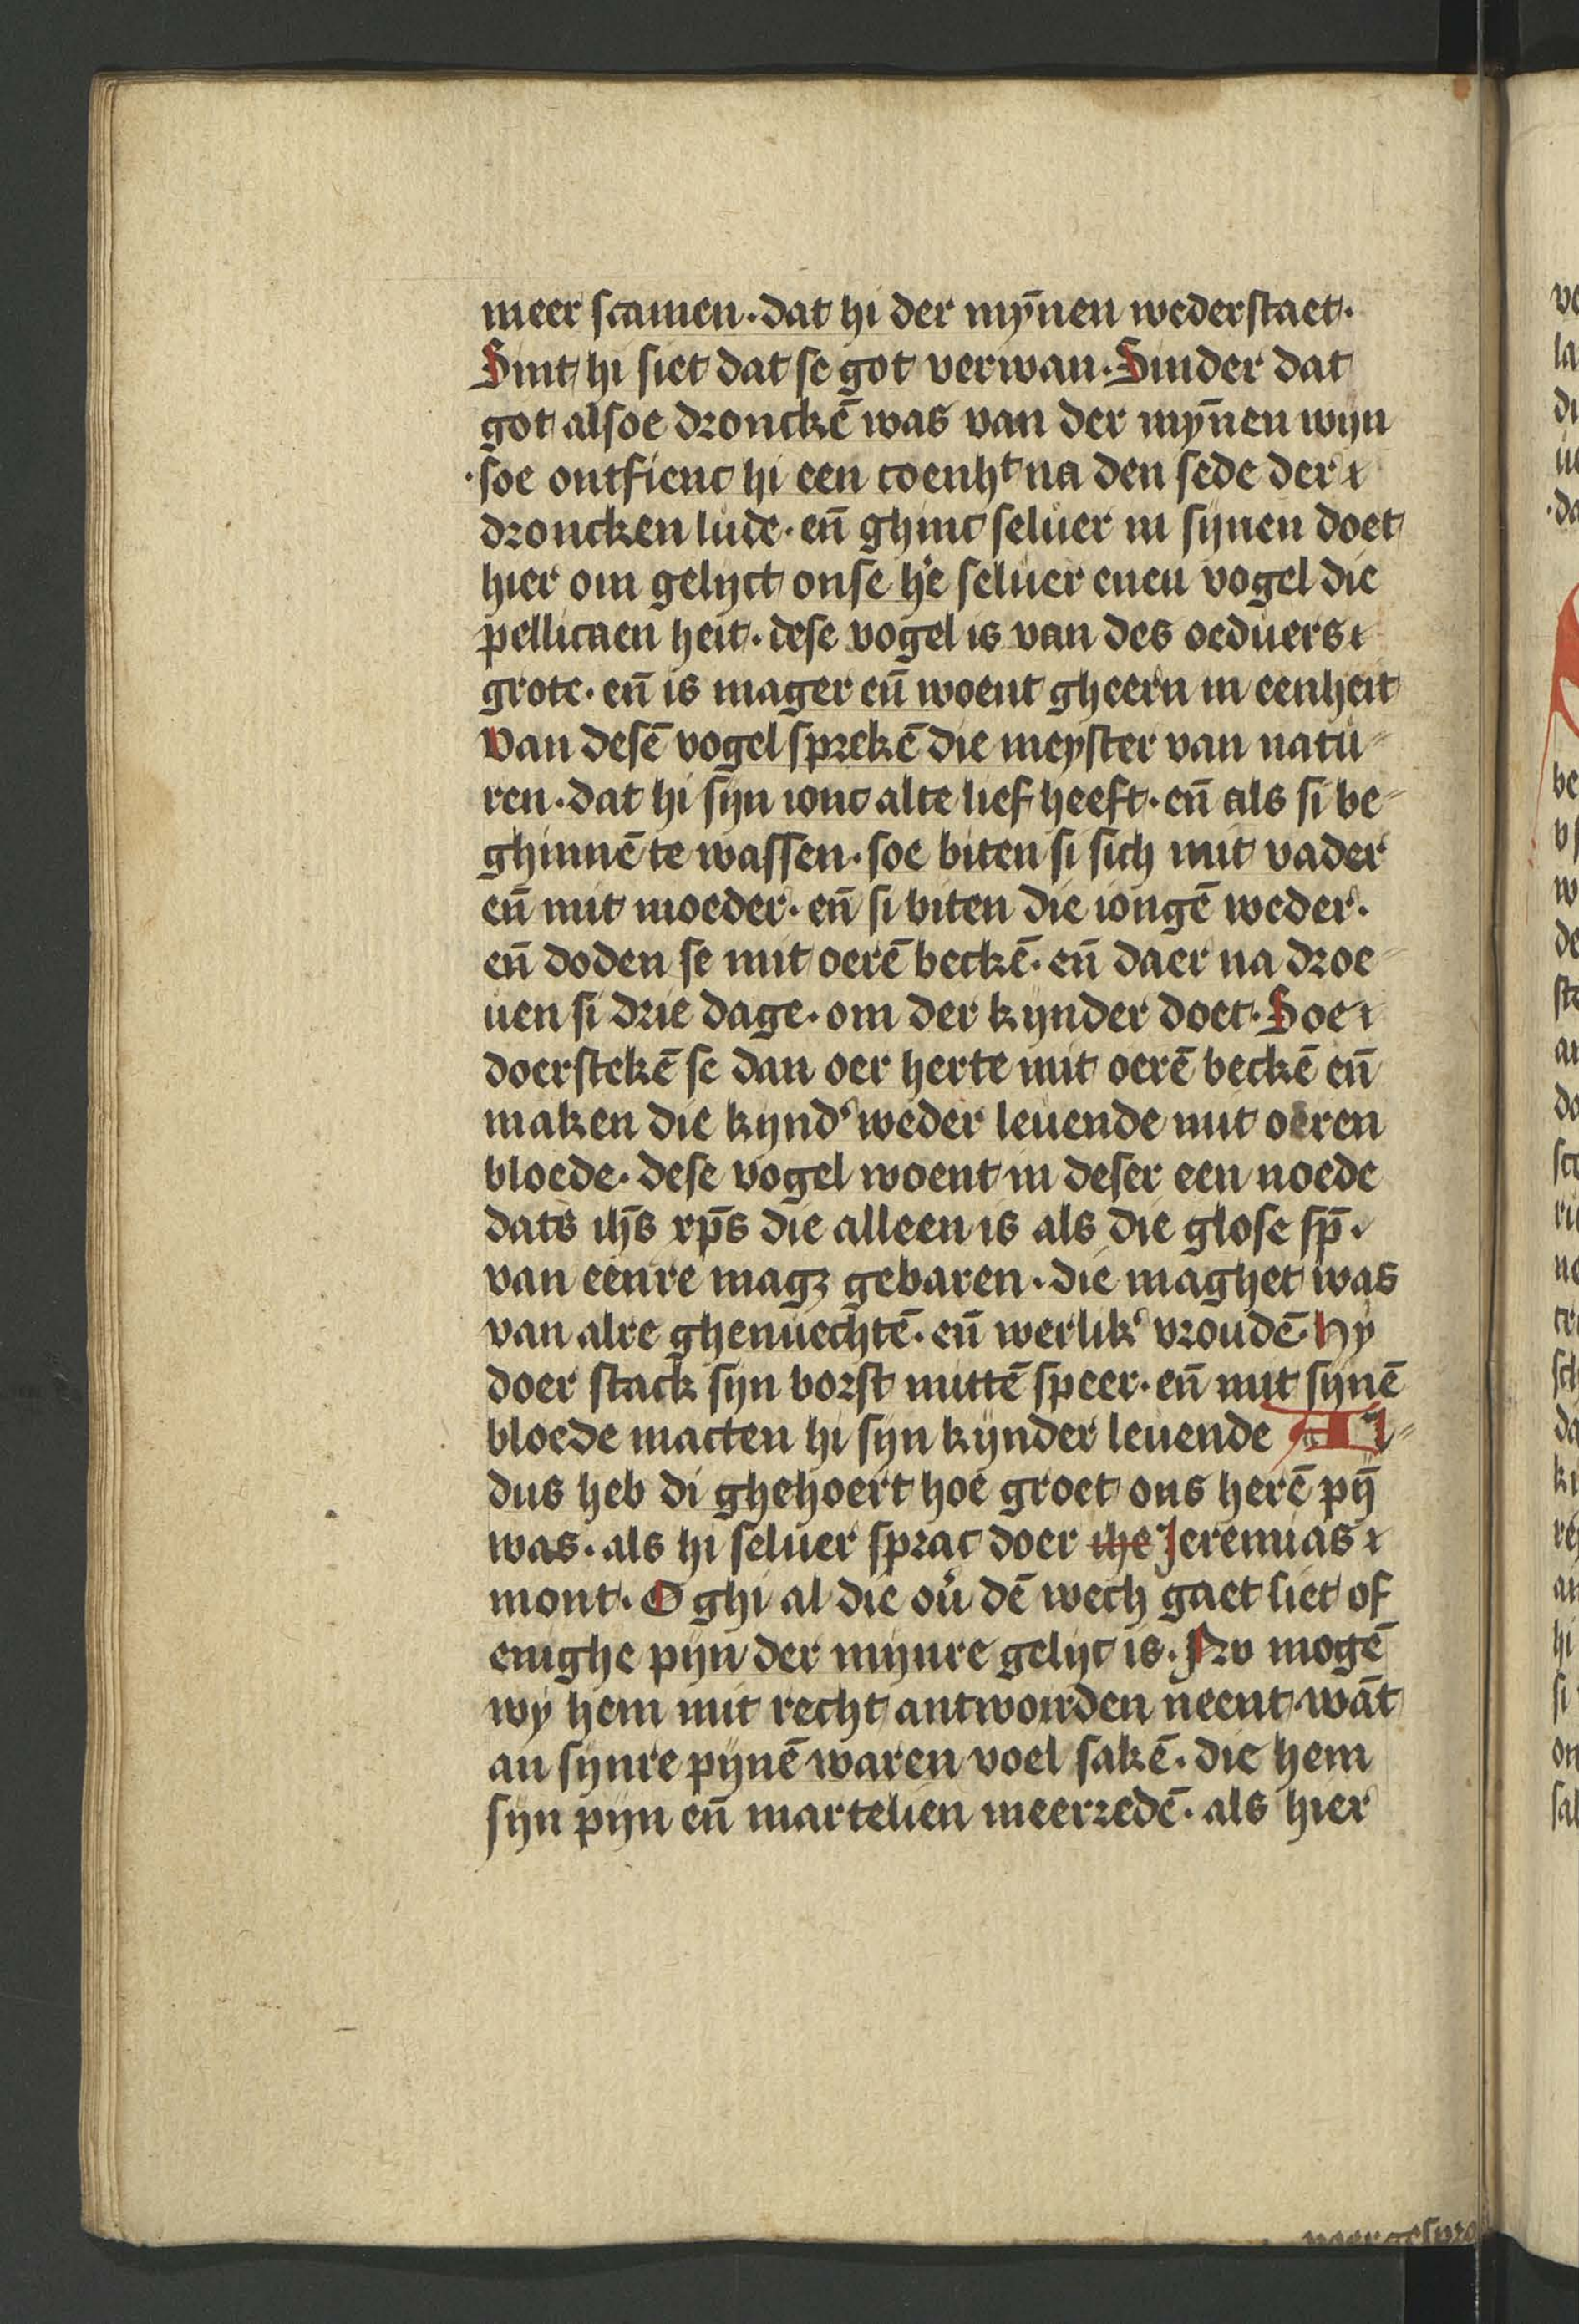 meer scamen · dat hi der mẏnen wederstaet ·
Sint hi siet dat se got verwan · Sinder dat
got alsoe dronckē was van der mȳnen wijn
· soe ontfienc hi een coenhᵗ na den sede der
droncken lude · en̄ ghinc seluer in sijnen doet
hier om gelijct onse h'e seluer enen vogel die
pellicaen heit · dese vogel is van des oeduers
grote · en̄ is mager en̄ woent gheern in eenheit
Van desē vogel sprekē die meyster van natu-
ren · dat hi sijn ionc alte lief heeft · en̄ als si be-
ghinnē te wassen · soe biten si sich mit vader
en̄ mit moeder · en̄ si biten die iongē weder ·
en̄ doden se mit oerē beckē · en̄ daer na droe-
uen si drie dage · om der kijnder doet · Soe
doerstekē se dan oer herte mit oerē beckē en̄
maken die kijnd' weder leuende mit oeren
bloede · dese vogel woent in deser een noede
dats ih̄s xp̄s die alleen is als die glose sp̄ ·
van eenre magꝫ gebaren · die maghet was
van alre ghenuechtē · en̄ werlik' vroudē · Hy
doer stack sijn borst mittē speer · en̄ mit sijnē
bloede macten hi sijn kijnder leuende Al-
dus heb di ghehoert hoe groet ons herē pij̄
was · als hi seluer sprac doer ihe Jeremias
mont · O ghi al die ou' dē wech gaet siet of
enighe pijn der mijnre gelijc is · Nv mogē
wy hem mit recht antworden neent · wāt
an sijnre pijnē waren voel sakē · die hem
sijn pijn en̄ martelien meerredē · als hier